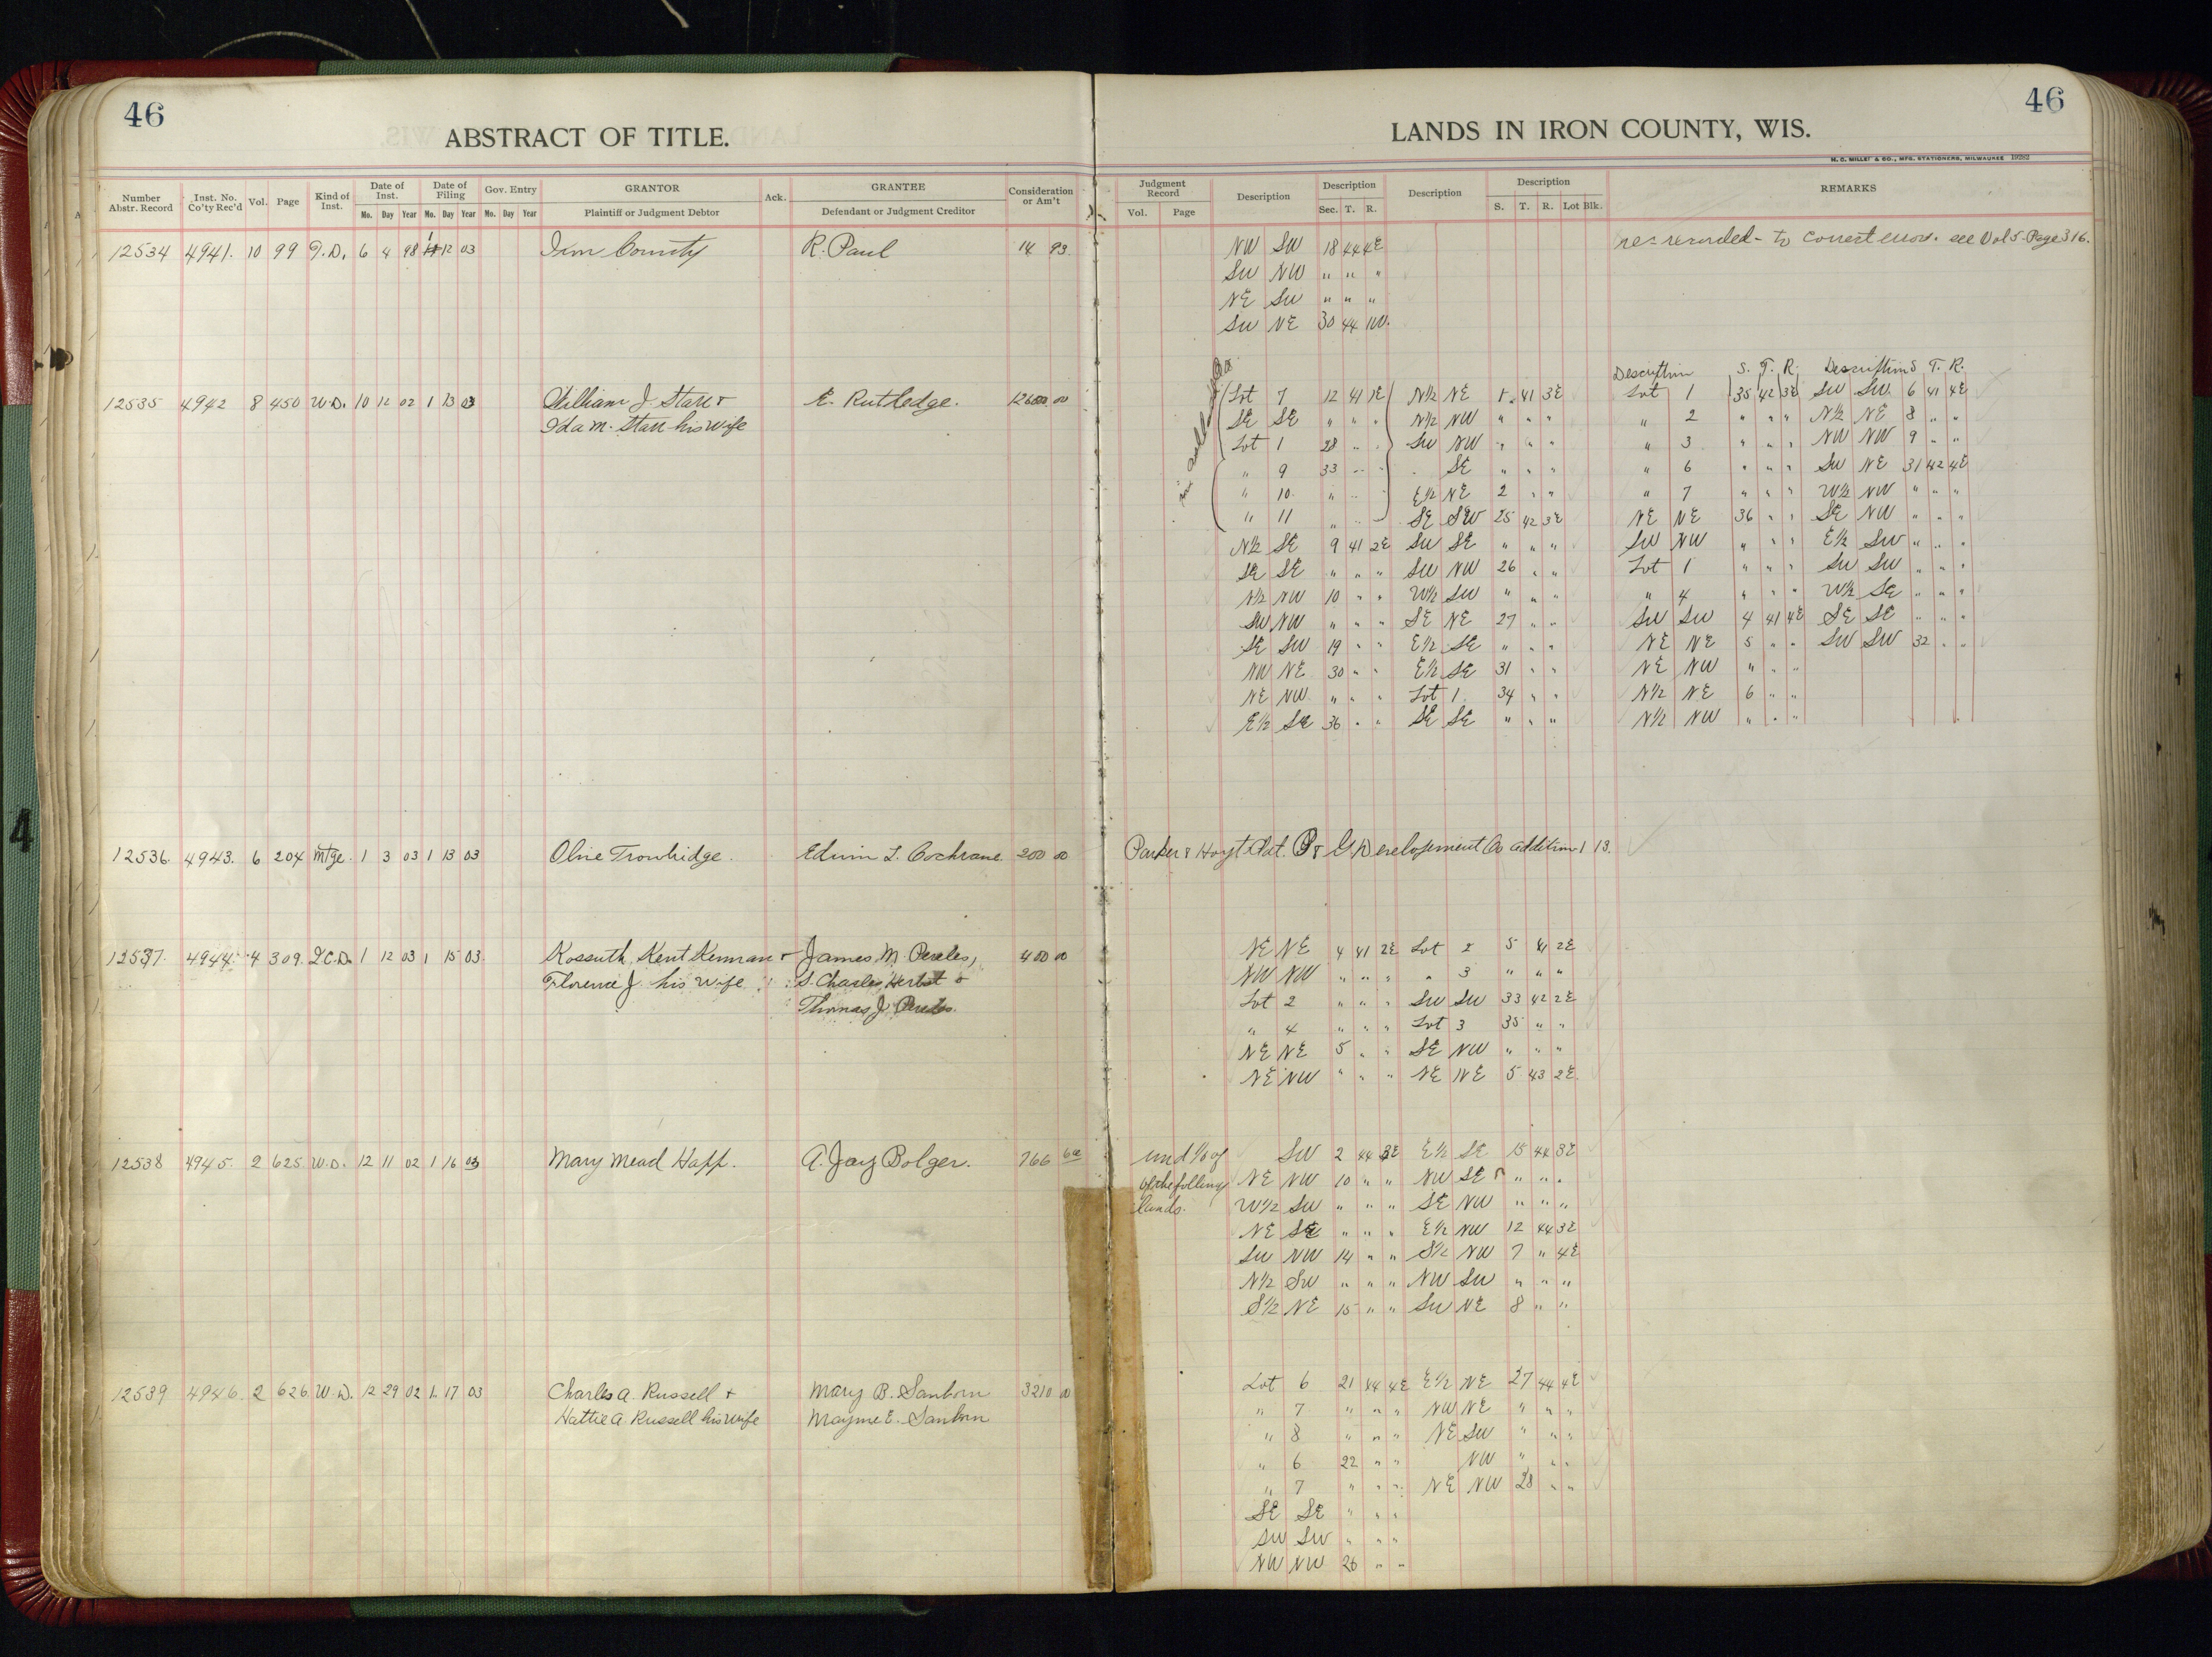 46
ABSTRACT OF TITLE.
Number Abstr. Record
Inst. No. Co'ty Rec'd
Vol.
Page
Kind of Inst.
Date of Inst.
Mo. Day Year
Date of Filing
Mo. Day Year
Gov. Entry
Mo. Day Year
GRANTOR
Plaintiff or Judgment Debtor
Ack.
GRANTEE
Defendant or Judgment Creditor
Consideration or Am't
12534 4941. 10 99 T.D. 6 4 98 1 12 03 Iron County R. Paul 14 93
12535 4942 8 450 W.D. 10 12 02 1 13 03 William J. Starr & E. Rutledge. 12600.00
Ida M. Starr his wife
12536. 4943. 6 204 Mtge. 1 3 03 1 13 03 Olive Trowbridge. Edwin L. Cochrane. 200 00
12537. 4944. 4 309. Q.C.D. 1 12 03 1 15 03. Kossuth Kent Kennan & James M. Pereles, 400 00
Florence J. his wife S. Charles Herbst &
Thomas J. Pereles.
12538 4945. 2 625 W.D. 12 11 02 1 16 03 Mary Mead Happ. A. Jay Bolger. 766
12539 4946. 2 626 W.D. 12 29 02 1 17 03 Charles A. Russell & Mary B. Sanborn 3210 00
Hattie A. Russell his wife Mayme E. Sanborn
46
LANDS IN IRON COUNTY, WIS.
H. C. MILLER & CO., MFG. STATIONERS, MILWAUKEE 19282
Judgment Record
Vol. Page
Description
Description
Sec. T. R.
Description
Description
S. T. R. Lot Blk.
REMARKS
NW SW 18 44 4E re-recorded- to correct error. see Vol 5-Page 316.
SW NW " " "
NE SW " " "
SW NE 30 44 1W.
Description S. T. R. Description S T. R.
Lot 7 12 41 1E N½ NE 1 41 3E Lot 1 35 42 3E SW SW 6 41 4E
SE SE " " " N½ NW " " " " 2 " " " N½ NE 8 " "
Lot 1 28 " " SW NW " " " " 3 " " " NW NW 9 " "
" 9 33 " " SE " " " " 6 " " " SW NE 31 42 4E
" 10 " " " E½ NE 2 " " " 7 " " " W½ NW " " "
" 11 " " " SE SW 25 42 3E NE NE 36 " " SE NW " " "
N½ SE 9 41 2E SW SE " " " SW NW " " " E½ SW " " "
SE SE " " " SW NW 26 " " Lot 1 " " " SW SW " " "
N½ NW 10 " " W½ SW " " " " 4 " " " W½ SE " " "
SW NW " " " SE NE 27 " " SW SW 4 41 4E SE SE " " "
SE SW 19 " " E½ SE " " " NE NE 5 " " SW SW 32 " "
NW NE 30 " " E½ SE 31 " " NE NW " " "
NE NW " " " Lot 1 34 " " N½ NE 6 " "
E½ SE 36 " " SE SE " " " N½ NW " " "
Parker & Hoyt Plat. P & G. Development Co addition 1 13.
NE NE 4 41 2E Lot 2 5 41 2E
NW NW " " " " 3 " " "
Lot 2 " " " SW SW 33 42 2E
" 4 " " " Lot 3 35 " "
NE NE 5 " " SE NW " " "
NE NW " " " NE NE 5 43 2E
und of SW 2 44 3E E½ SE 15 44 3E
of the following NE NW 10 " " NW SE " " "
lands. W½ SW " " " SE NW " " "
NE SE " " " E½ NW 12 44 3E
SW NW 14 " " S½ NW 7 " 4E
N½ SW " " " NW SW " " "
S½ NE 15 " " SW NE 8 " "
Lot 6 21 44 4E E½ NE 27 44 4E
" 7 " " " NW NE " " "
" 8 " " " NE SW " " "
" 6 22 " " NW " " "
" 7 " " " NE NW 28 " "
SE SE " " "
SW SW " " "
NW NW 26 " "
4